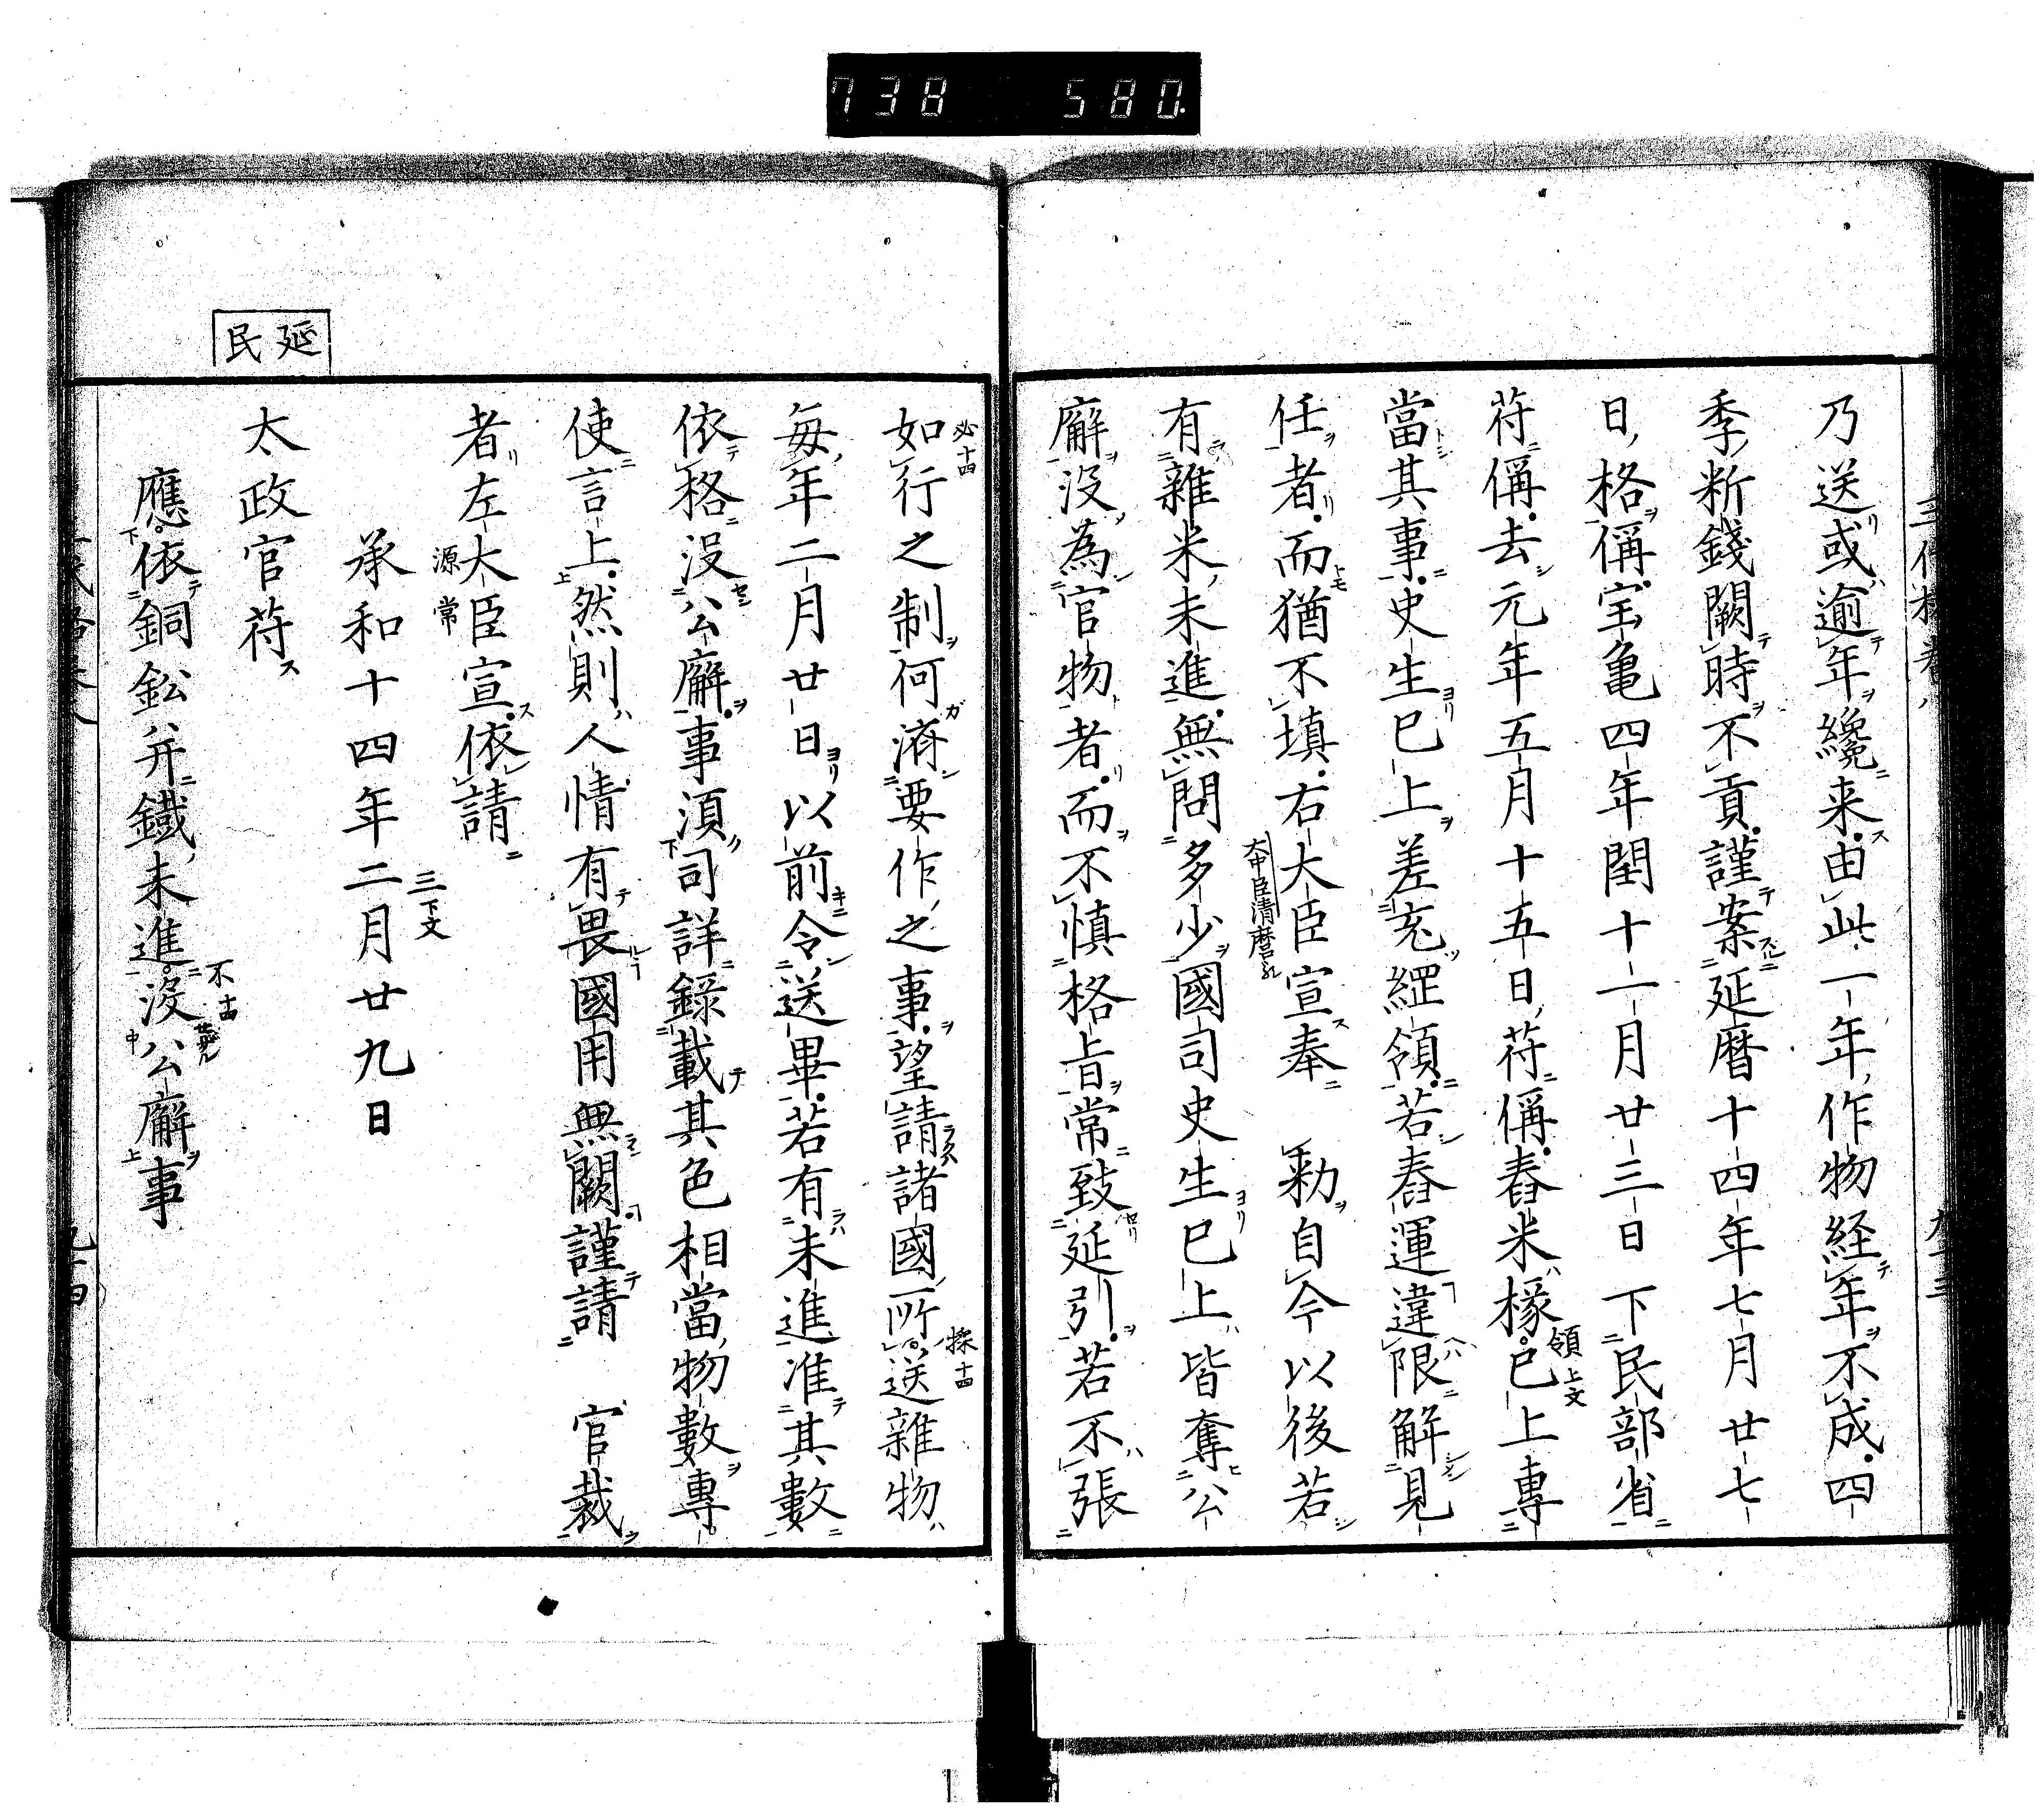 738 580
乃送或逾年纔来由此一年作物経年不成四
季断錢闕時不貢謹案延暦十四年七月廿七
日格偁宝亀四年閏十一月廿三日下民部省
符偁去元年五月十五日符偁舂米椽已上專
領上文
當其事史生已上差充綱領若舂運違限解見
任者而猶不填右大臣宣奉 勅自今以後若
大中臣清麿
有雜米未進無問多少國司史生已上皆奪公
廨没為官物者而不慎格旨常致延引若不張
必十四
如行之制何済要作之事望請諸國所送雜物
採十四
毎年二月廿日以前令送畢若有未進准其數
依格没公廨事須司詳録載其色相當物數專
使言上然則人情有畏國用無闕謹請 官裁
者左大臣宣依請
源常
承和十四年二月廿九日
三下文
延民
太政官符
應依銅鈆并鐵未進没公廨事
不十四